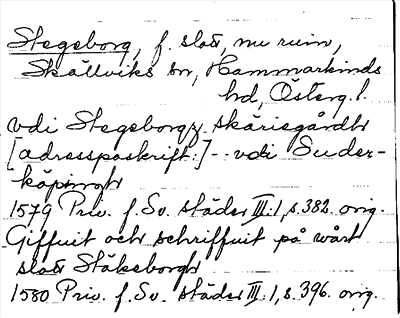 Stegeborg, f. slott, nu ruin,
Skällviks sn, Hammarkinds
hd, Österg.l.
vdi Stegeborgz skärisgårdh
[adresspåskrift:] -- vdi Suder-
köpingh
1579 Priv. f. Sv. städer III:1, s. 382. orig.
Giffuit och schriffuit på wårt
slott Stäkeborgh
1580 Priv. f. Sv. städer III:1, s. 396. orig.